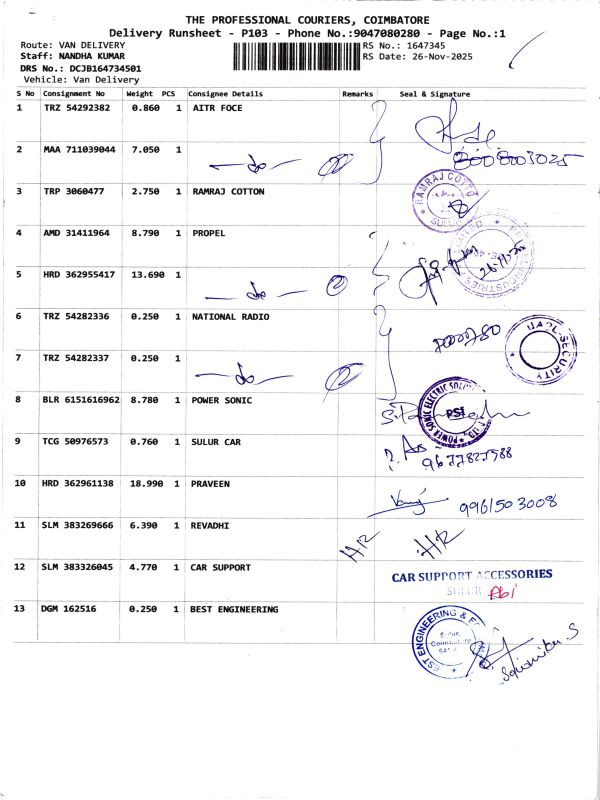 THE PROFESSIONAL COURIERS, COIMBATORE
Delivery Runsheet - P103 - Phone No.:9047080280 - Page No.:1
Route: VAN DELIVERY RS No.: 1647345
Staff: NANDHA KUMAR RS Date: 26-Nov-2025
DRS No.: DCJB164734501
Vehicle: Van Delivery
S No Consignment No Weight PCS Consignee Details Remarks Seal & Signature
1 TRZ 54292382 0.860 1 AITR FOCE
2 MAA 711039044 7.050 1 —do—
3 TRP 3060477 2.750 1 RAMRAJ COTTON RAMRAJ COTTO SULUR
4 AMD 31411964 8.790 1 PROPEL
5 HRD 362955417 13.690 1 —do—
6 TRZ 54282336 0.250 1 NATIONAL RADIO
7 TRZ 54282337 0.250 1 —do— SECURITY
8 BLR 6151616962 8.780 1 POWER SONIC POWER SONIC ELECTRIC PSI
9 TCG 50976573 0.760 1 SULUR CAR
10 HRD 362961138 18.990 1 PRAVEEN 9961503008
11 SLM 383269666 6.390 1 REVADHI HR HR
12 SLM 383326045 4.770 1 CAR SUPPORT CAR SUPPORT ACCESSORIES
SULUR Abi
13 DGM 162516 0.250 1 BEST ENGINEERING EST ENGINEERING &
Sulur,
Coimbatore